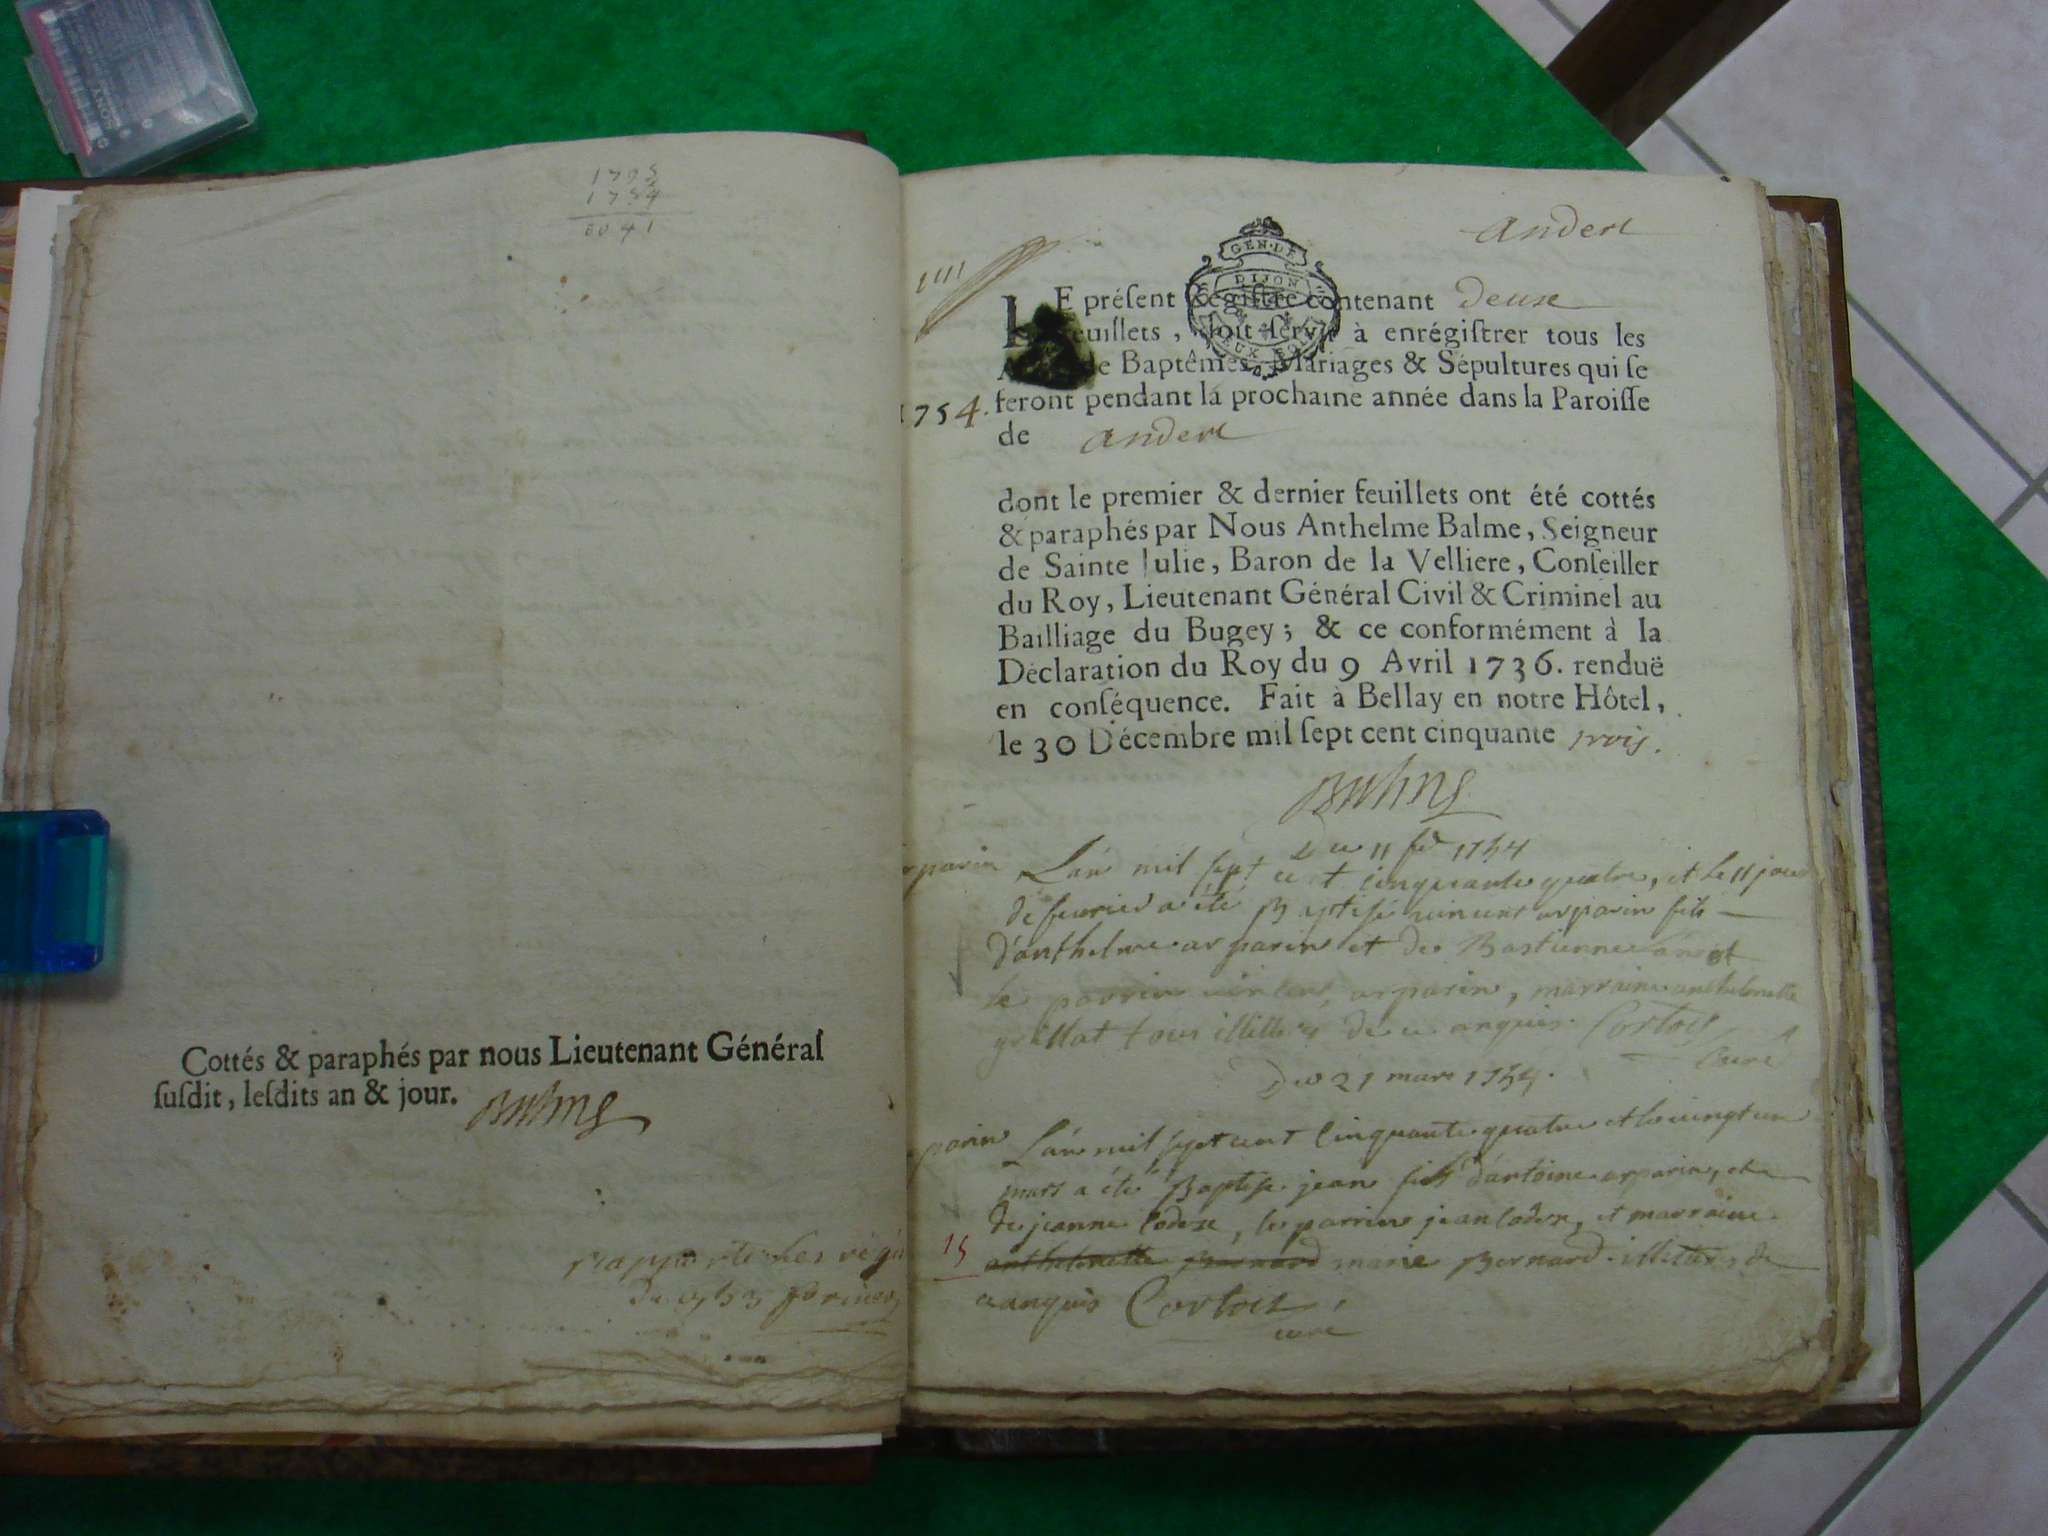 SONY
1795
1754
0041
Cottés & paraphés par nous Lieutenant Général
ſuſdit, leſdits an & jour.
andert
GEN·DE
DIJON
LE préſent Regiſtre contenant deux
feuillets, doit ſervir à enrégiſtrer tous les
de Baptêmes, Mariages & Sépultures qui ſe
1754. feront pendant la prochaine année dans la Paroiſſe
de andert
dont le premier & dernier feuillets ont été cottés
& paraphés par Nous Anthelme Balme, Seigneur
de Sainte Julie, Baron de la Velliere, Conſeiller
du Roy, Lieutenant Général Civil & Criminel au
Bailliage du Bugey; & ce conformément à la
Déclaration du Roy du 9 Avril 1736. renduë
en conſéquence. Fait à Bellay en notre Hôtel,
le 30 Décembre mil ſept cent cinquante trois.
Du 11 fer 1754
arparin L'an mil sept cent cinquante quatre, et le 11 jour
de feurier a été Baptisé uincent arparin fils
d'anthelme arparin et de Bastienne
le parrin uincent arparin, marraine anthelmette
grillat tous illitterés de ce enquis. Cortois
Curé
Du 21 mars 1754.
parin L'an mil sept cent cinquante quatre et le uingt un
mars a été Baptisé jean fils d'antoine arparin, et
de jeanne Codex, le parrin jean Codex, et marraine
15 anthelmette Bernard marie Bernard illiterés de
ce enquis Cortois
curé